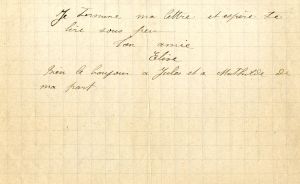 Je termine ma lettre et espère te
lire sous peu
Ton amie
Elise
Bien le bonjour a Jules et a Mathilde de
ma part